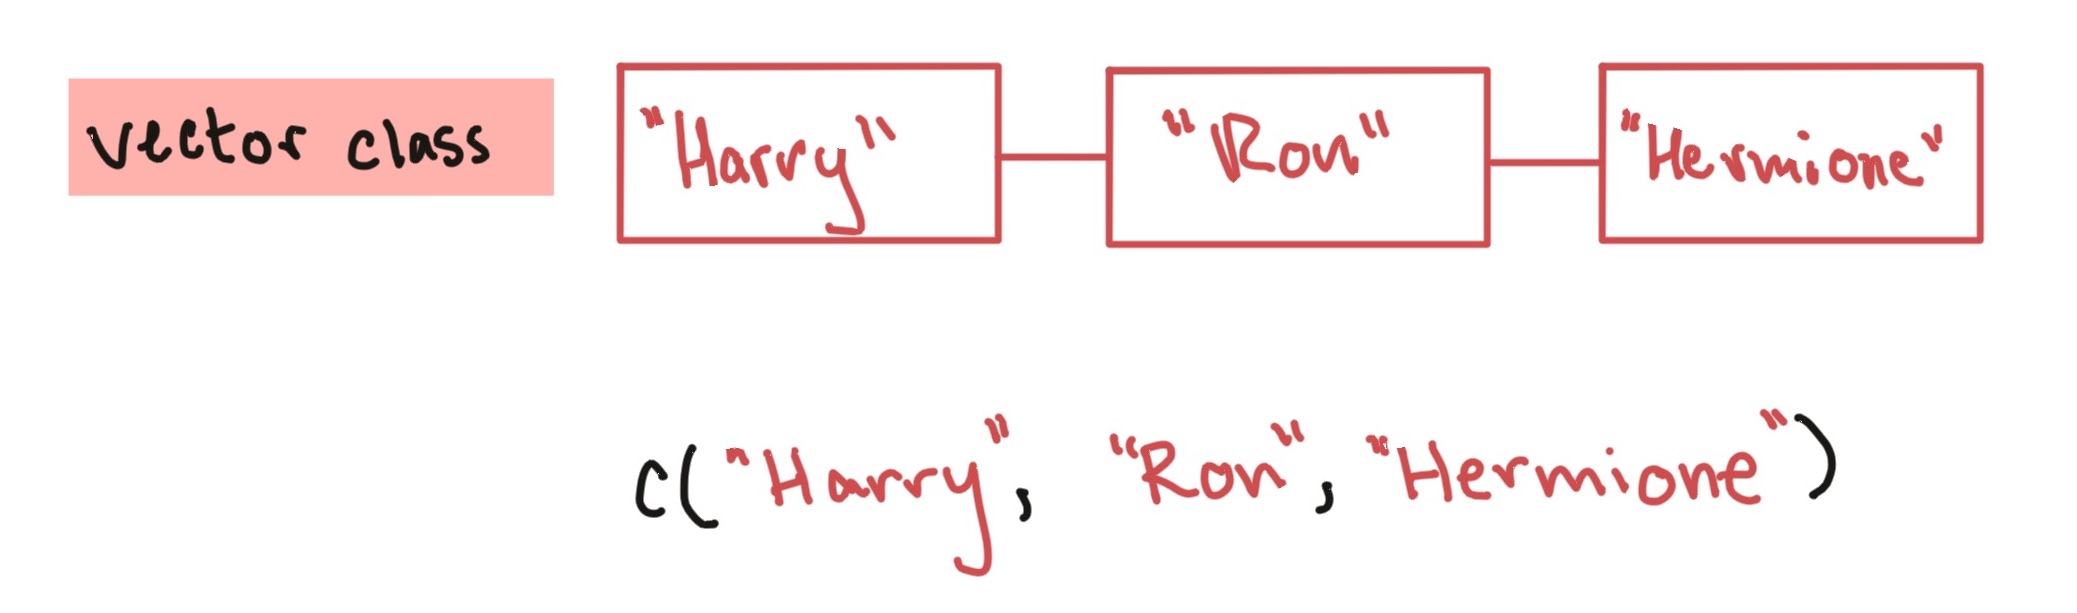 vector class
"Harry" "Ron" "Hermione"
c("Harry", "Ron", "Hermione")